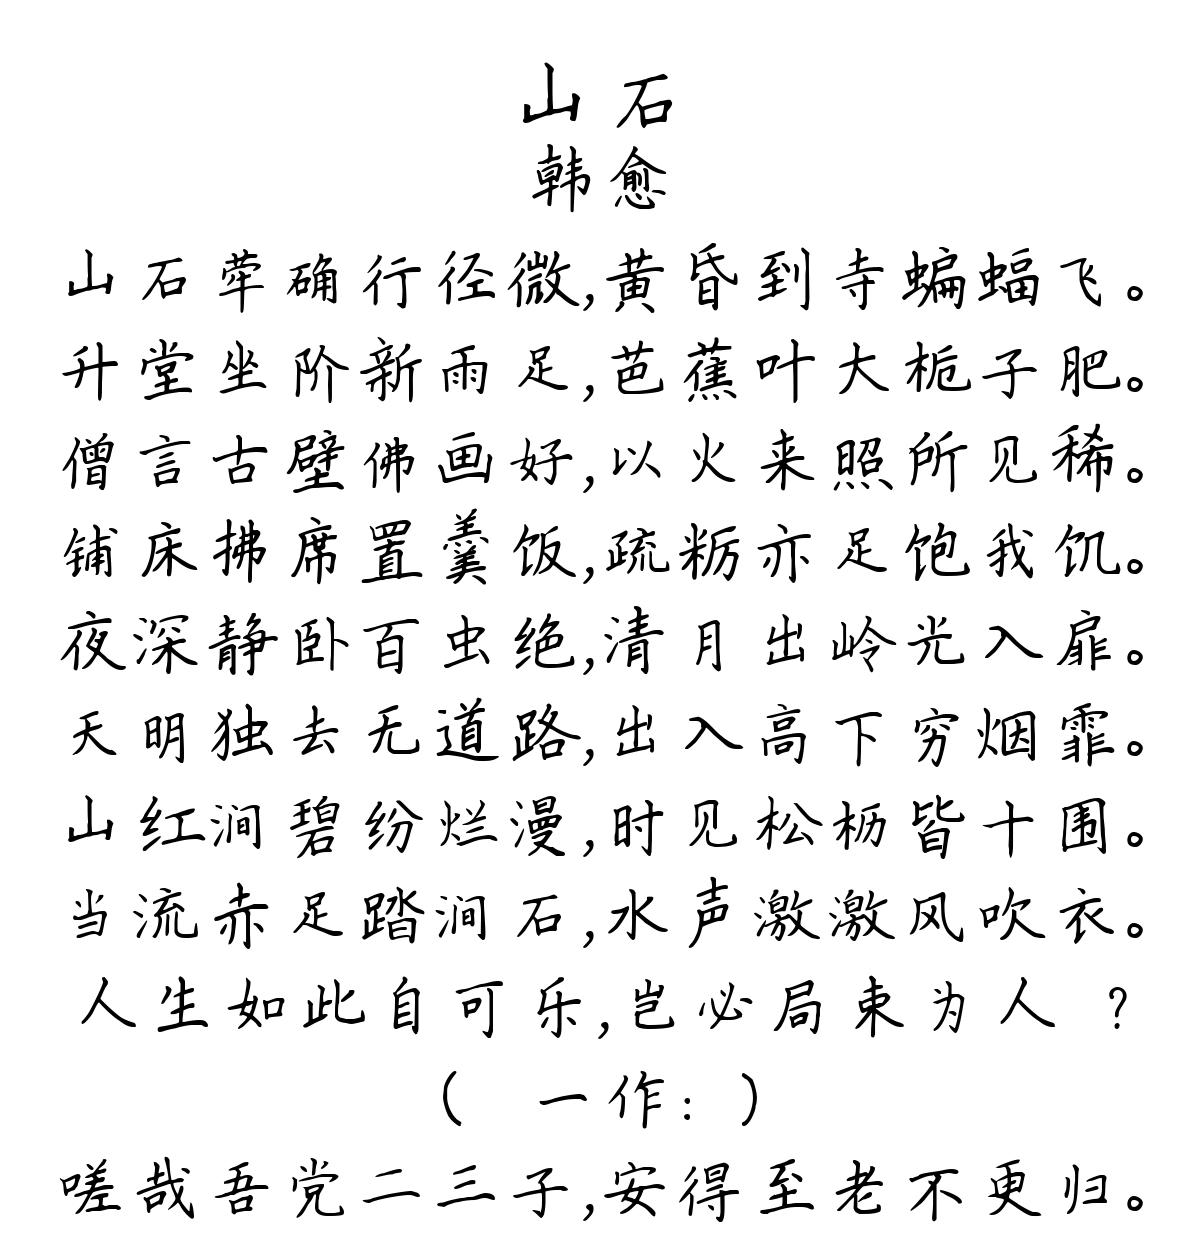 山石
韩愈
山石荦确行径微,黄昏到寺蝙蝠飞。
升堂坐阶新雨足,芭蕉叶大栀子肥。
僧言古壁佛画好,以火来照所见稀。
铺床拂席置羹饭,疏粝亦足饱我饥。
夜深静卧百虫绝,清月出岭光入扉。
天明独去无道路,出入高下穷烟霏。
山红涧碧纷烂漫,时见松枥皆十围。
当流赤足踏涧石,水声激激风吹衣。
人生如此自可乐,岂必局束为人 ?
( 一作: )
嗟哉吾党二三子,安得至老不更归。